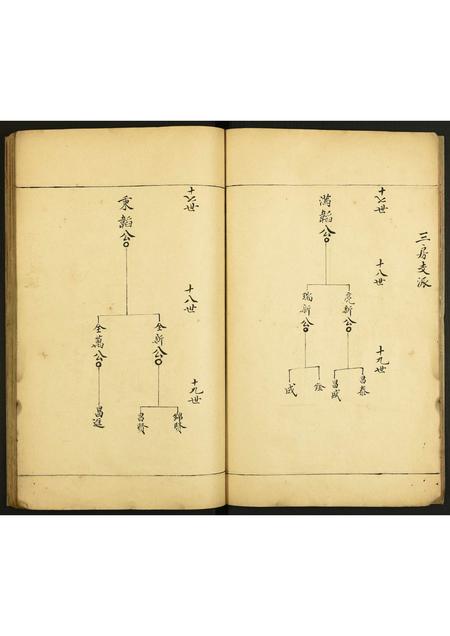 三房支派
十七世
滿韜公
十八世
亮新公
瑞新公
十九世
昌泰
昌成
成
十七世
秉韜公
十八世
全新公
全萬公
十九世
錦
昌
昌進